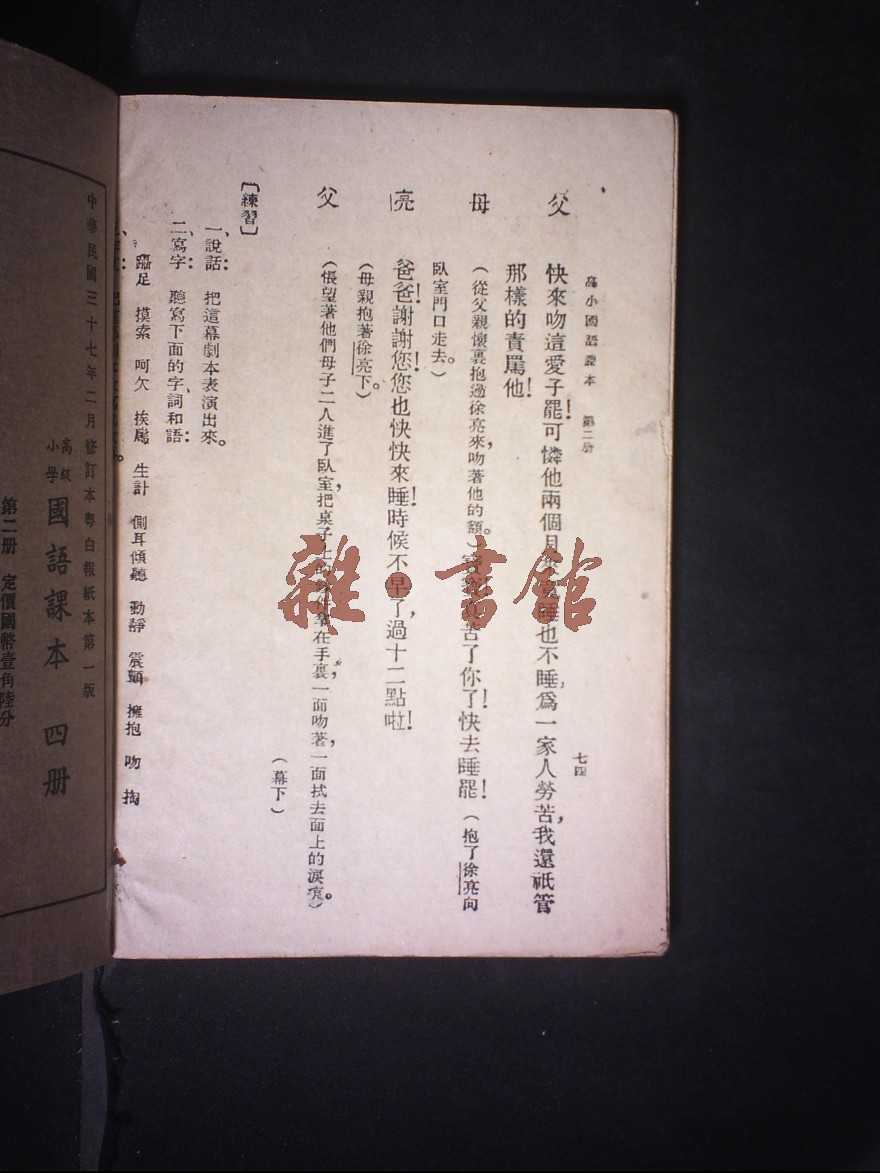 高小國語課本　第二册
七四
父　快來吻這愛子罷！可憐他兩個月睡也不睡，爲一家人勞苦，我還祇管
那樣的責罵他！
母　（從父親懷裏抱過徐亮來，吻著他的額。）苦了你了！快去睡罷！（抱了徐亮向
臥室門口走去。）
亮　爸爸！謝謝您！您也快快來睡！時候不早了，過十二點啦！
（母親抱著徐亮下。）
父　（悵望著他們母子二人進了臥室，把桌子上的在手裏，一面吻著，一面拭去面上的淚痕。）
（幕下）
〔練習〕
一、說話：把這幕劇本表演出來。
二、寫字：聽寫下面的字、詞和語：
躡足　摸索　呵欠　挨罵　生計　側耳傾聽　動靜　震顫　擁抱　吻　掏
中華民國三十七年二月修訂本粤白報紙本第一版
高級小學　國語課本　四册
第二册　定價國幣壹角陸分
雜·書館